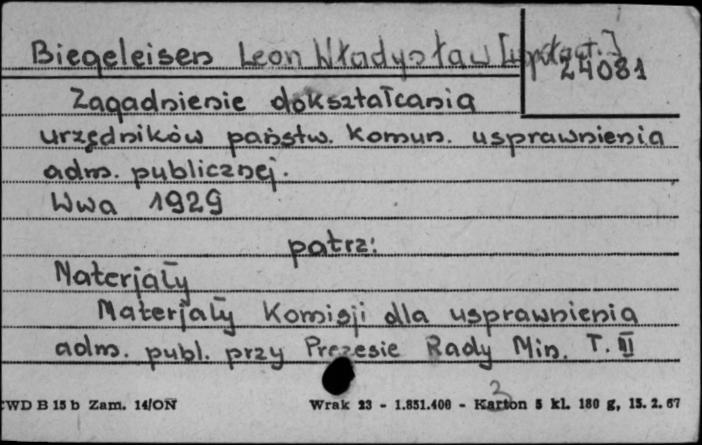 Biegeleisen Leon Władysław [współaut.]
24081
Zagadnienie dokształcania
urzędników państw. komun. usprawnienia
adm. publicznej.
Wwa 1929
patrz:
Materjały
Materjały Komisji dla usprawnienia
adm. publ. przy Prezesie Rady Min. T. III
3
CWD B 15 b Zam. 14/ON Wrak 23 - 1.851.400 - Karton 5 kl. 180 g, 15. 2. 67